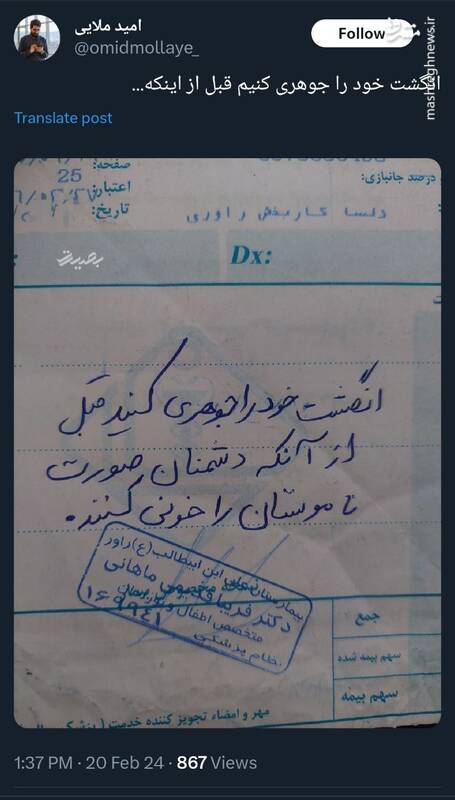 امید ملایی
@omidmollaye_
Follow
mashreghnews.ir
انگشت خود را جوهری کنیم قبل از اینکه...
Translate post
صفحه:
25
اعتبار:
تاریخ:
درصد جانبازی:
دلسا کاربخش راوری
Dx:
بصیرت
انگشت خود را جوهری کنید قبل
از آنکه دشمنان صورت
ناموستان را خونی کنند.
بیمارستان علی ابن ابیطالب(ع) راور
دکتر فریبا ماهانی
متخصص اطفال و نوزادان
نظام پزشکی
جمع
سهم بیمه شده
سهم بیمه
مهر و امضاء تجویز کننده خدمت
1:37 PM · 20 Feb 24 · 867 Views